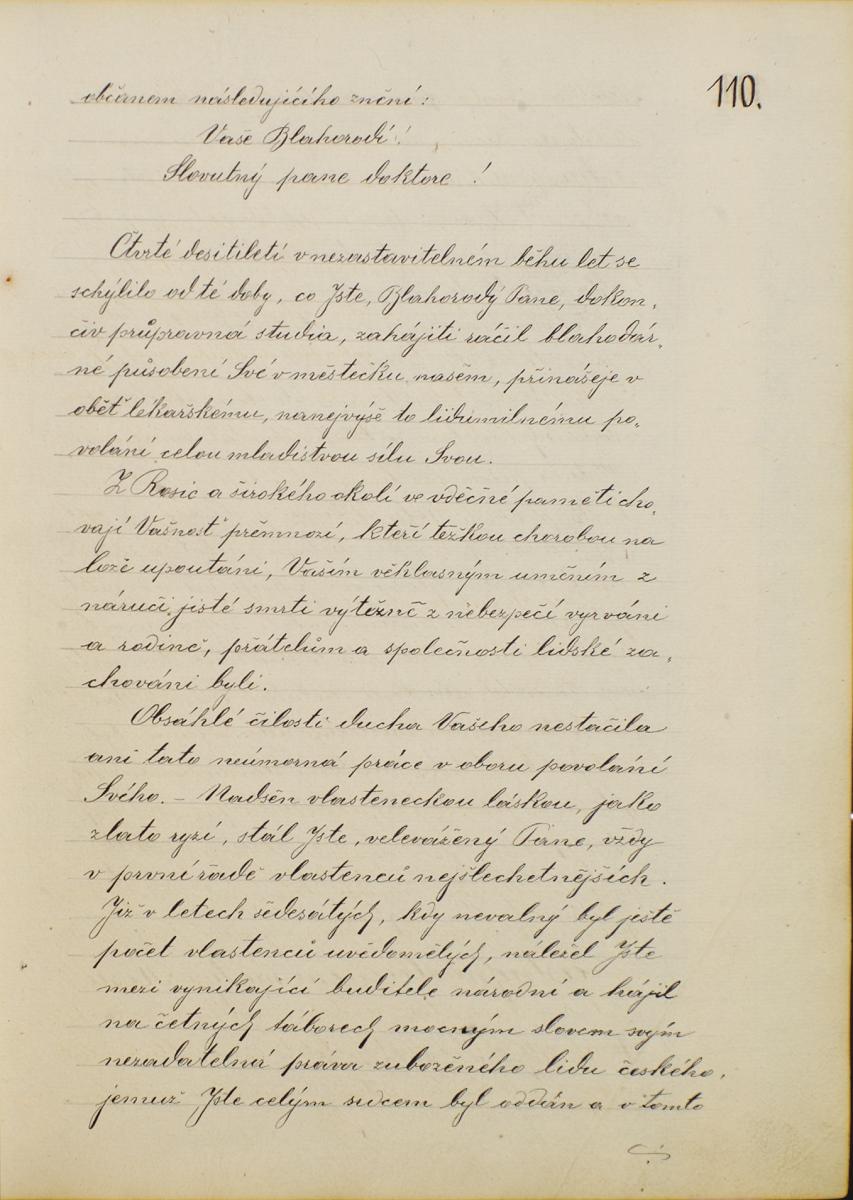 110.
občanem následujícího znění:
Vaše Blahorodí!
Slovutný pane doktore!
Čtvrté desitiletí v nezastavitelném běhu let se
schýlilo od té doby, co Jste, Blahorodý Pane, dokon„
čiv průpravná studia, zahájiti ráčil blahodár„
né působení Své v městečku našem, přinášeje v
obět lékařskému, nanejvýše to lidumilnému po„
volání celou mladistvou sílu Svou.
Z Rosic a širokého okolí ve vděčné paměti cho„
vají Vašnost přemnozí, kteří těžkou chorobou na
lože upoutáni, Vaším věhlasným uměním z
náručí jisté smrti výtěžně z nebezpečí vyrváni
a rodině, přátelům a společnosti lidské za„
chováni byli.
Obsáhlé čilosti ducha Vašeho nestačila
ani tato neúmorná práce v oboru povolání
Svého. – Nadšen vlasteneckou láskou, jako
zlato ryzí, stál Jste, velevážený Pane, vždy
v první řadě vlastenců nejšlechetnějších.
Již v letech šedesátých, kdy nevalný byl jistě
počet vlastenců uvědomělých, náležel Jste
mezi vynikající buditele národní a hájil
na četných táborech mocným slovem svým
nezadatelná práva zuboženého lidu českého,
jemuž Jste celým srdcem byl oddán a v tomto